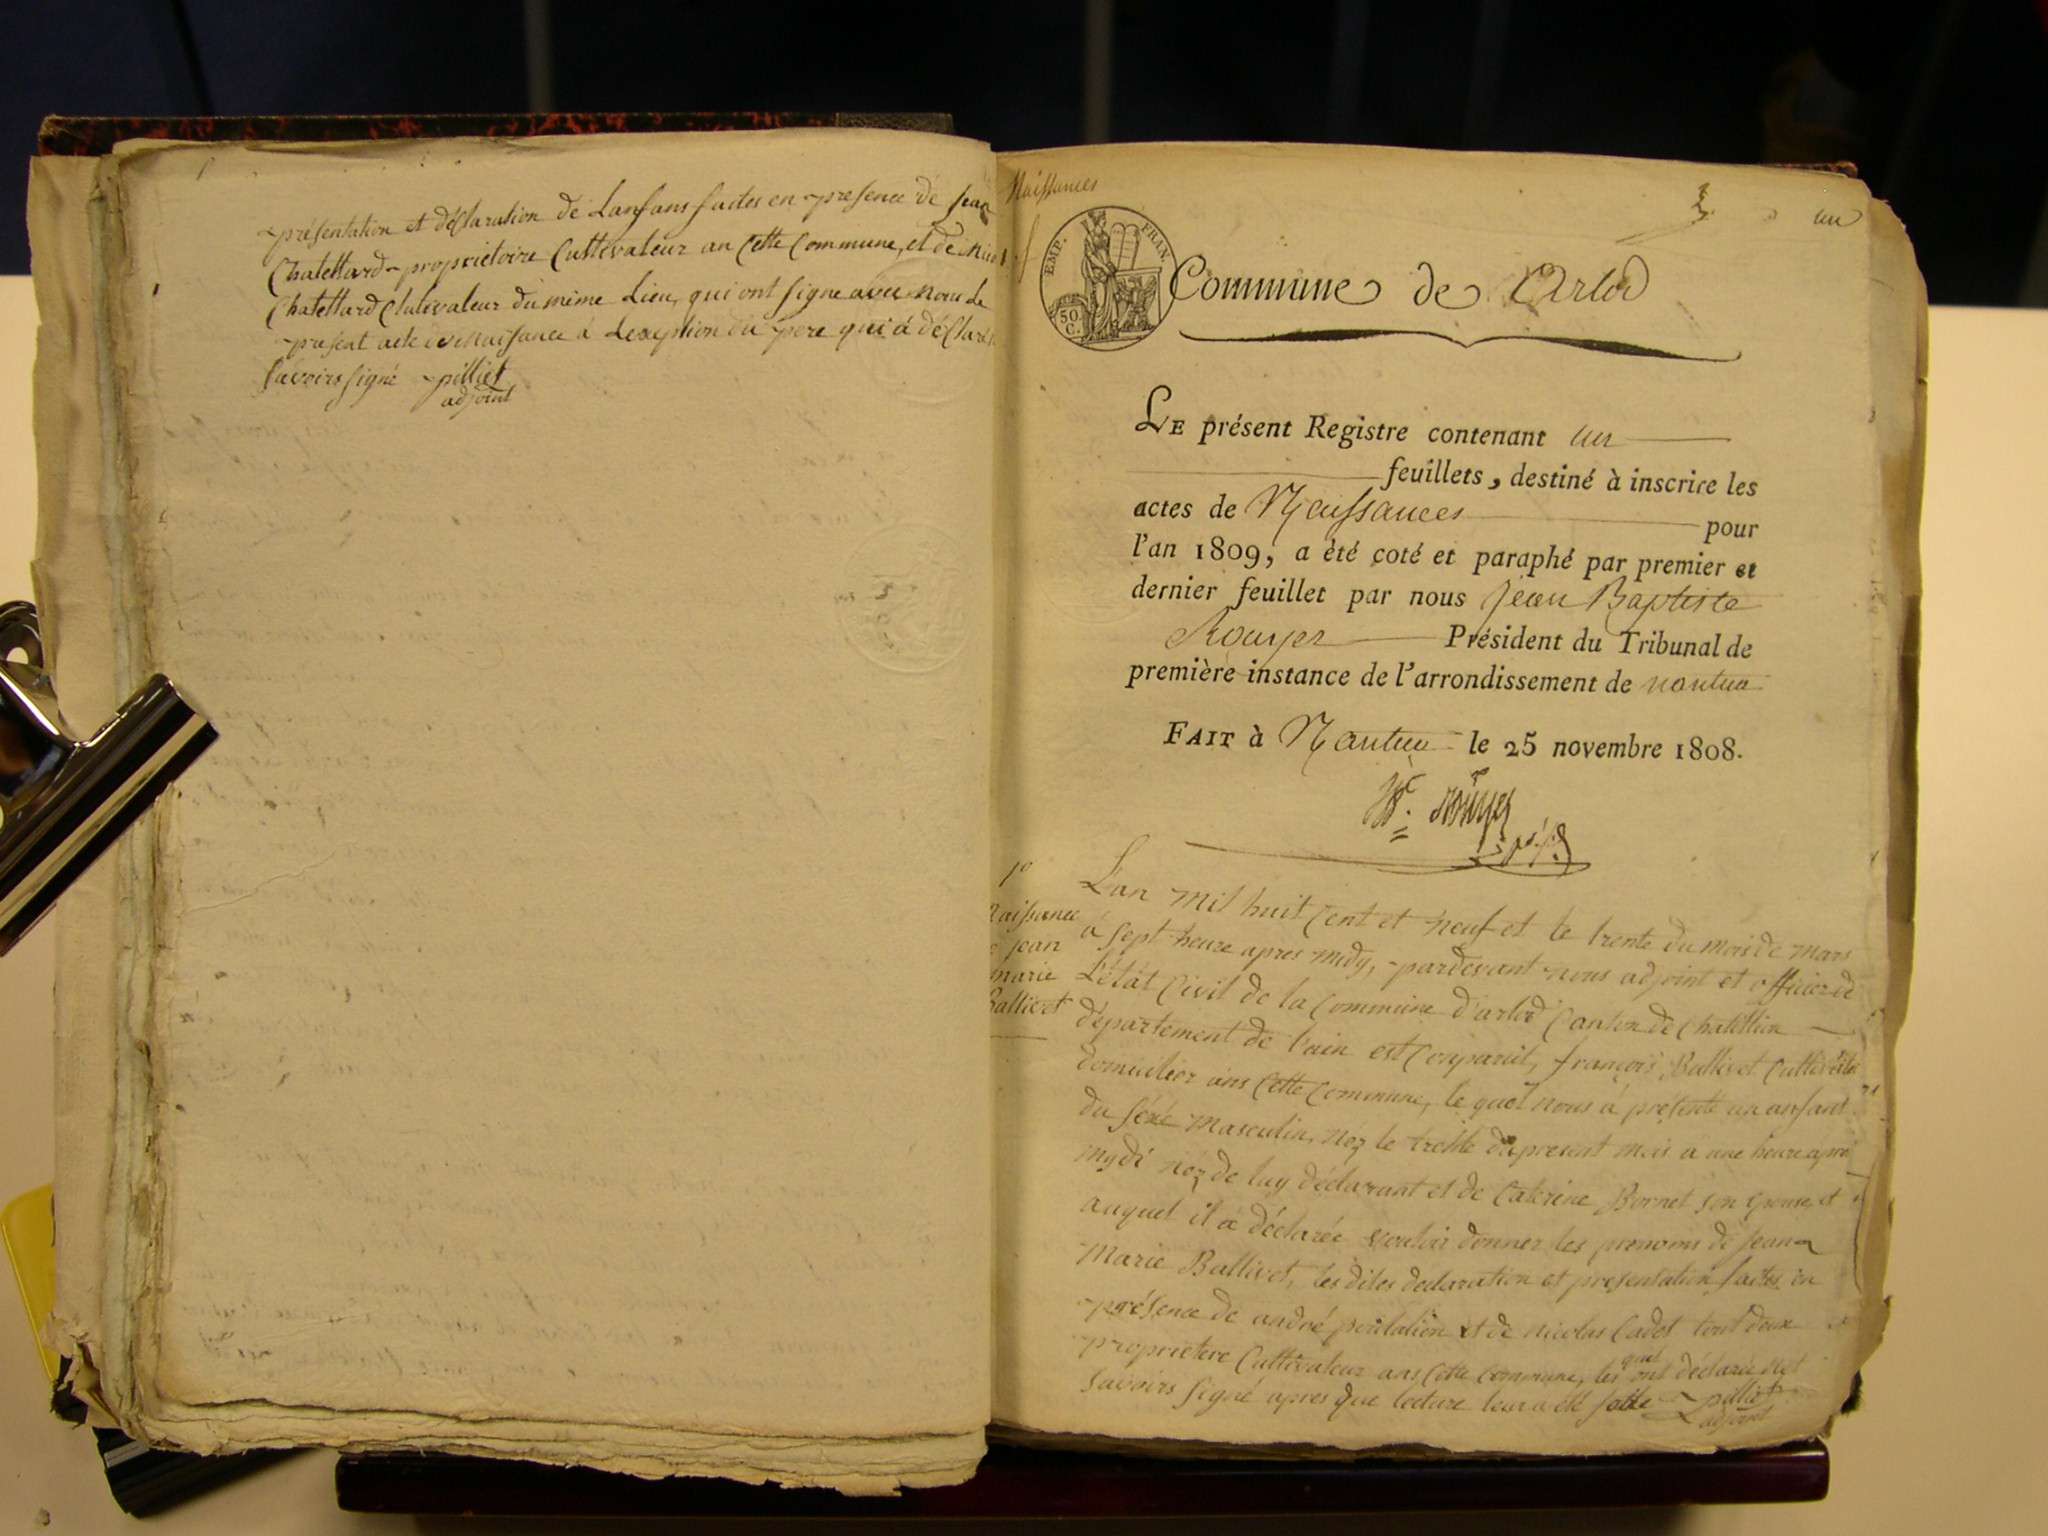 présentation et déclaration de Lanfans faites en presence de jean
Chatettard proprietoire Cultevateur an Cette Commune, et de
Chatettard Cultevateur du même Lieu, qui ont signe avec nous Le
present acte de Naissance á Lexeption du pere qui á déClaré
savoirs signé pilliet
adjoint
Naissances
un
EMP. FRAN.
50 C.
Commune de Arlod
LE présent Registre contenant un
feuillets, destiné à inscrire les
actes de Naissances pour
l'an 1809, a été coté et paraphé par premier et
dernier feuillet par nous Jean Baptiste
Rouyer Président du Tribunal de
première instance de l'arrondissement de nantua
FAIT à Nantua le 25 novembre 1808.
Rouyer
1º
Naissance
jean
marie
Ballivet
L'an mil huit Cent et neuf et le trente du mois de mars
á sept heure apres midy, pardevant nous adjoint et officier de
L'état Civil de la Commune d'arlod Canton de Chatillion
département de l'ain est Conparût, françois Ballivet Cultivateur
domicilier ans Cette Commune, le quel nous á présenté un anfant
du séxe masculin, néz le trente du present mois á une heure aprè
mydi néz de luy déclarant et de Caterine Bornet son epouse, et
auquel il á déclarée vouloir donner les prenoms de jean
Marie Ballivet, les dites declaration et presentation faites en
présence de andré et de nicolas Cadot tout deux
proprietere Cultivateur ans Cette Commune, les quel ont déclarée
savoirs signé apres que lecture leur a été faitte pilliet
adjoint